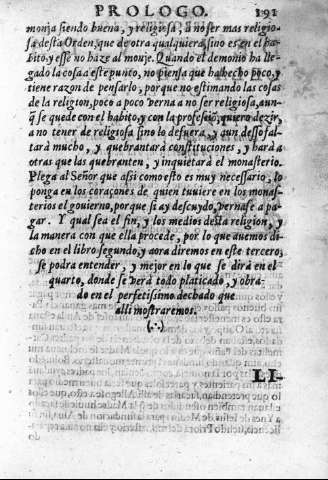 PROLOGO. 191
monja siendo buena, y religiosa, a no ser mas religio-
sa desta Orden, que de otra qualquiera, sino es en el ha-
bito, y esse no haze al monje. Quando el demonio ha lle-
gado la cosa a este punto, no piensa que ha hecho poco, y
tiene razon de pensarlo, porque no estimando las cosas
de la religion, poco a poco verna a no ser religiosa, aun-
q̃ se quede con el habito, y con la profesiõ, quiero dezir,
a no tener de religiosa sino lo de fuera, y aun desso fal-
tarà mucho, y quebrantarà constituciones, y harà a
otras que las quebranten, y inquietarà el monasterio.
Plega al Señor que assi como esto es muy necessario, lo
ponga en los coraçones de quien tuuiere en los monas-
terios el gouierno, porque si ay descuydo, vernase a pa-
gar. Y qual sea el fin, y los medios desta religion, y
la manera con que ella procede, por lo que auemos di-
cho en el libro segundo, y aora diremos en este tercero,
se podra entender, y mejor en lo que se dirà en el
quarto, donde se verà todo platicado, y obra-
do en el perfetissimo dechado que
alli mostraremos.
(∴)
LI-